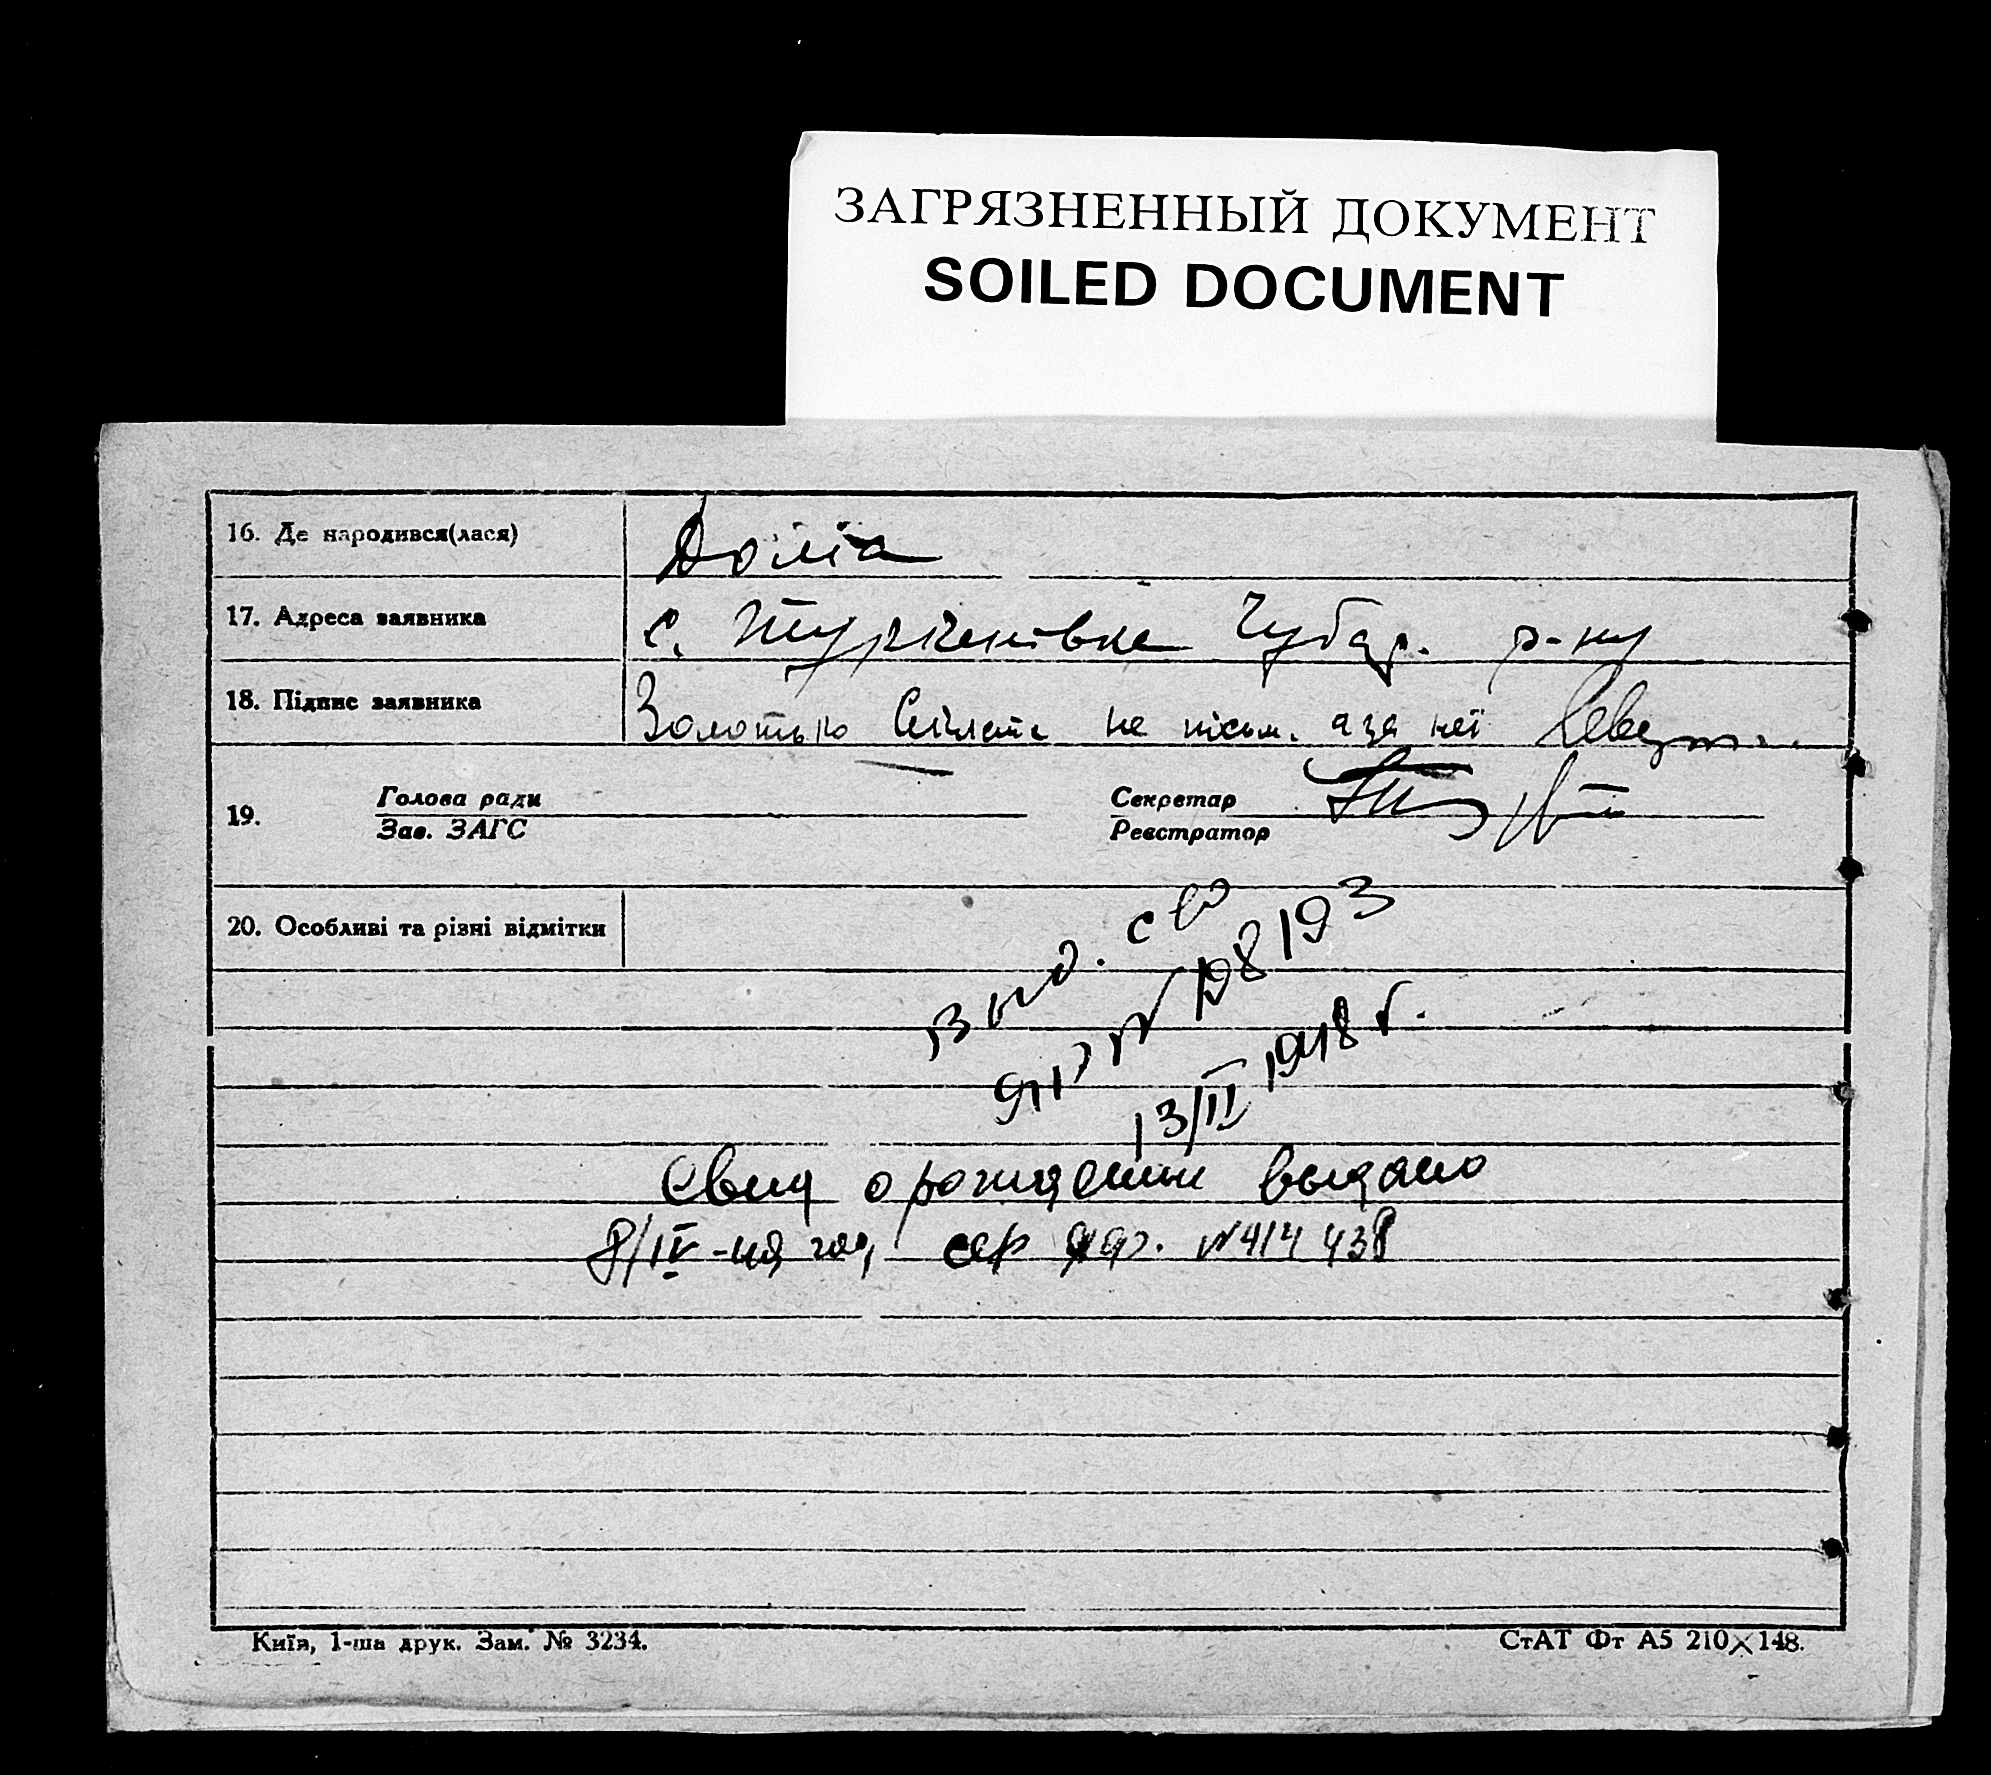 ЗАГРЯЗНЕННЫЙ ДОКУМЕНТ
SOILED DOCUMENT
16. Де народився(лася) Доліа
17. Адреса заявника с. Туркенівка Чубар. р-ну
18. Підпис заявника Золотько не письм. а за неї
19. Голова ради
Зав. ЗАГС
Секретар
Реєстратор
20. Особливі та різні відмітки
Выд. сво
№ 198193
13/II 1948 г.
Свид о рождении выдано
8/IV сер № 414438
Київ, 1-ша друк. Зам. № 3234.
СтАТ Фт А5 210×148.